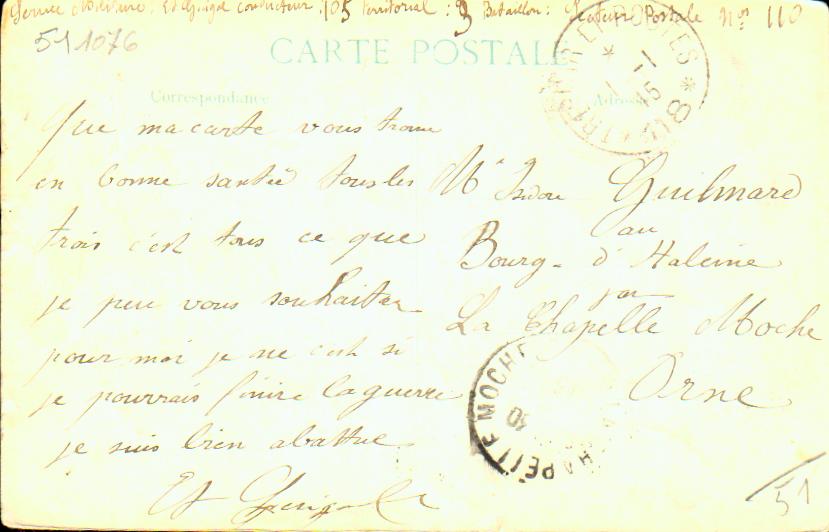 Service Militaire. Et Guigal conducteur. 105 Territorial: 9 Bataillon: Secteur Postale Nos 110
511076
CARTE POSTALE
Correspondance
Adresse
TRESOR ET POSTES
* 1-1 15 *
Que ma carte vous trouve
en bonne santée tous les
trois c'est tous ce que
je peu vous souhaiter
pour moi je ne c'est si
je pourrais finire la guerre
je suis bien abattue
Et
Mr Isidore Guilmard
au
Bourg- d'Haleine
par
La Chapelle Moche
Orne
CHAPELLE MOCHE
10
51